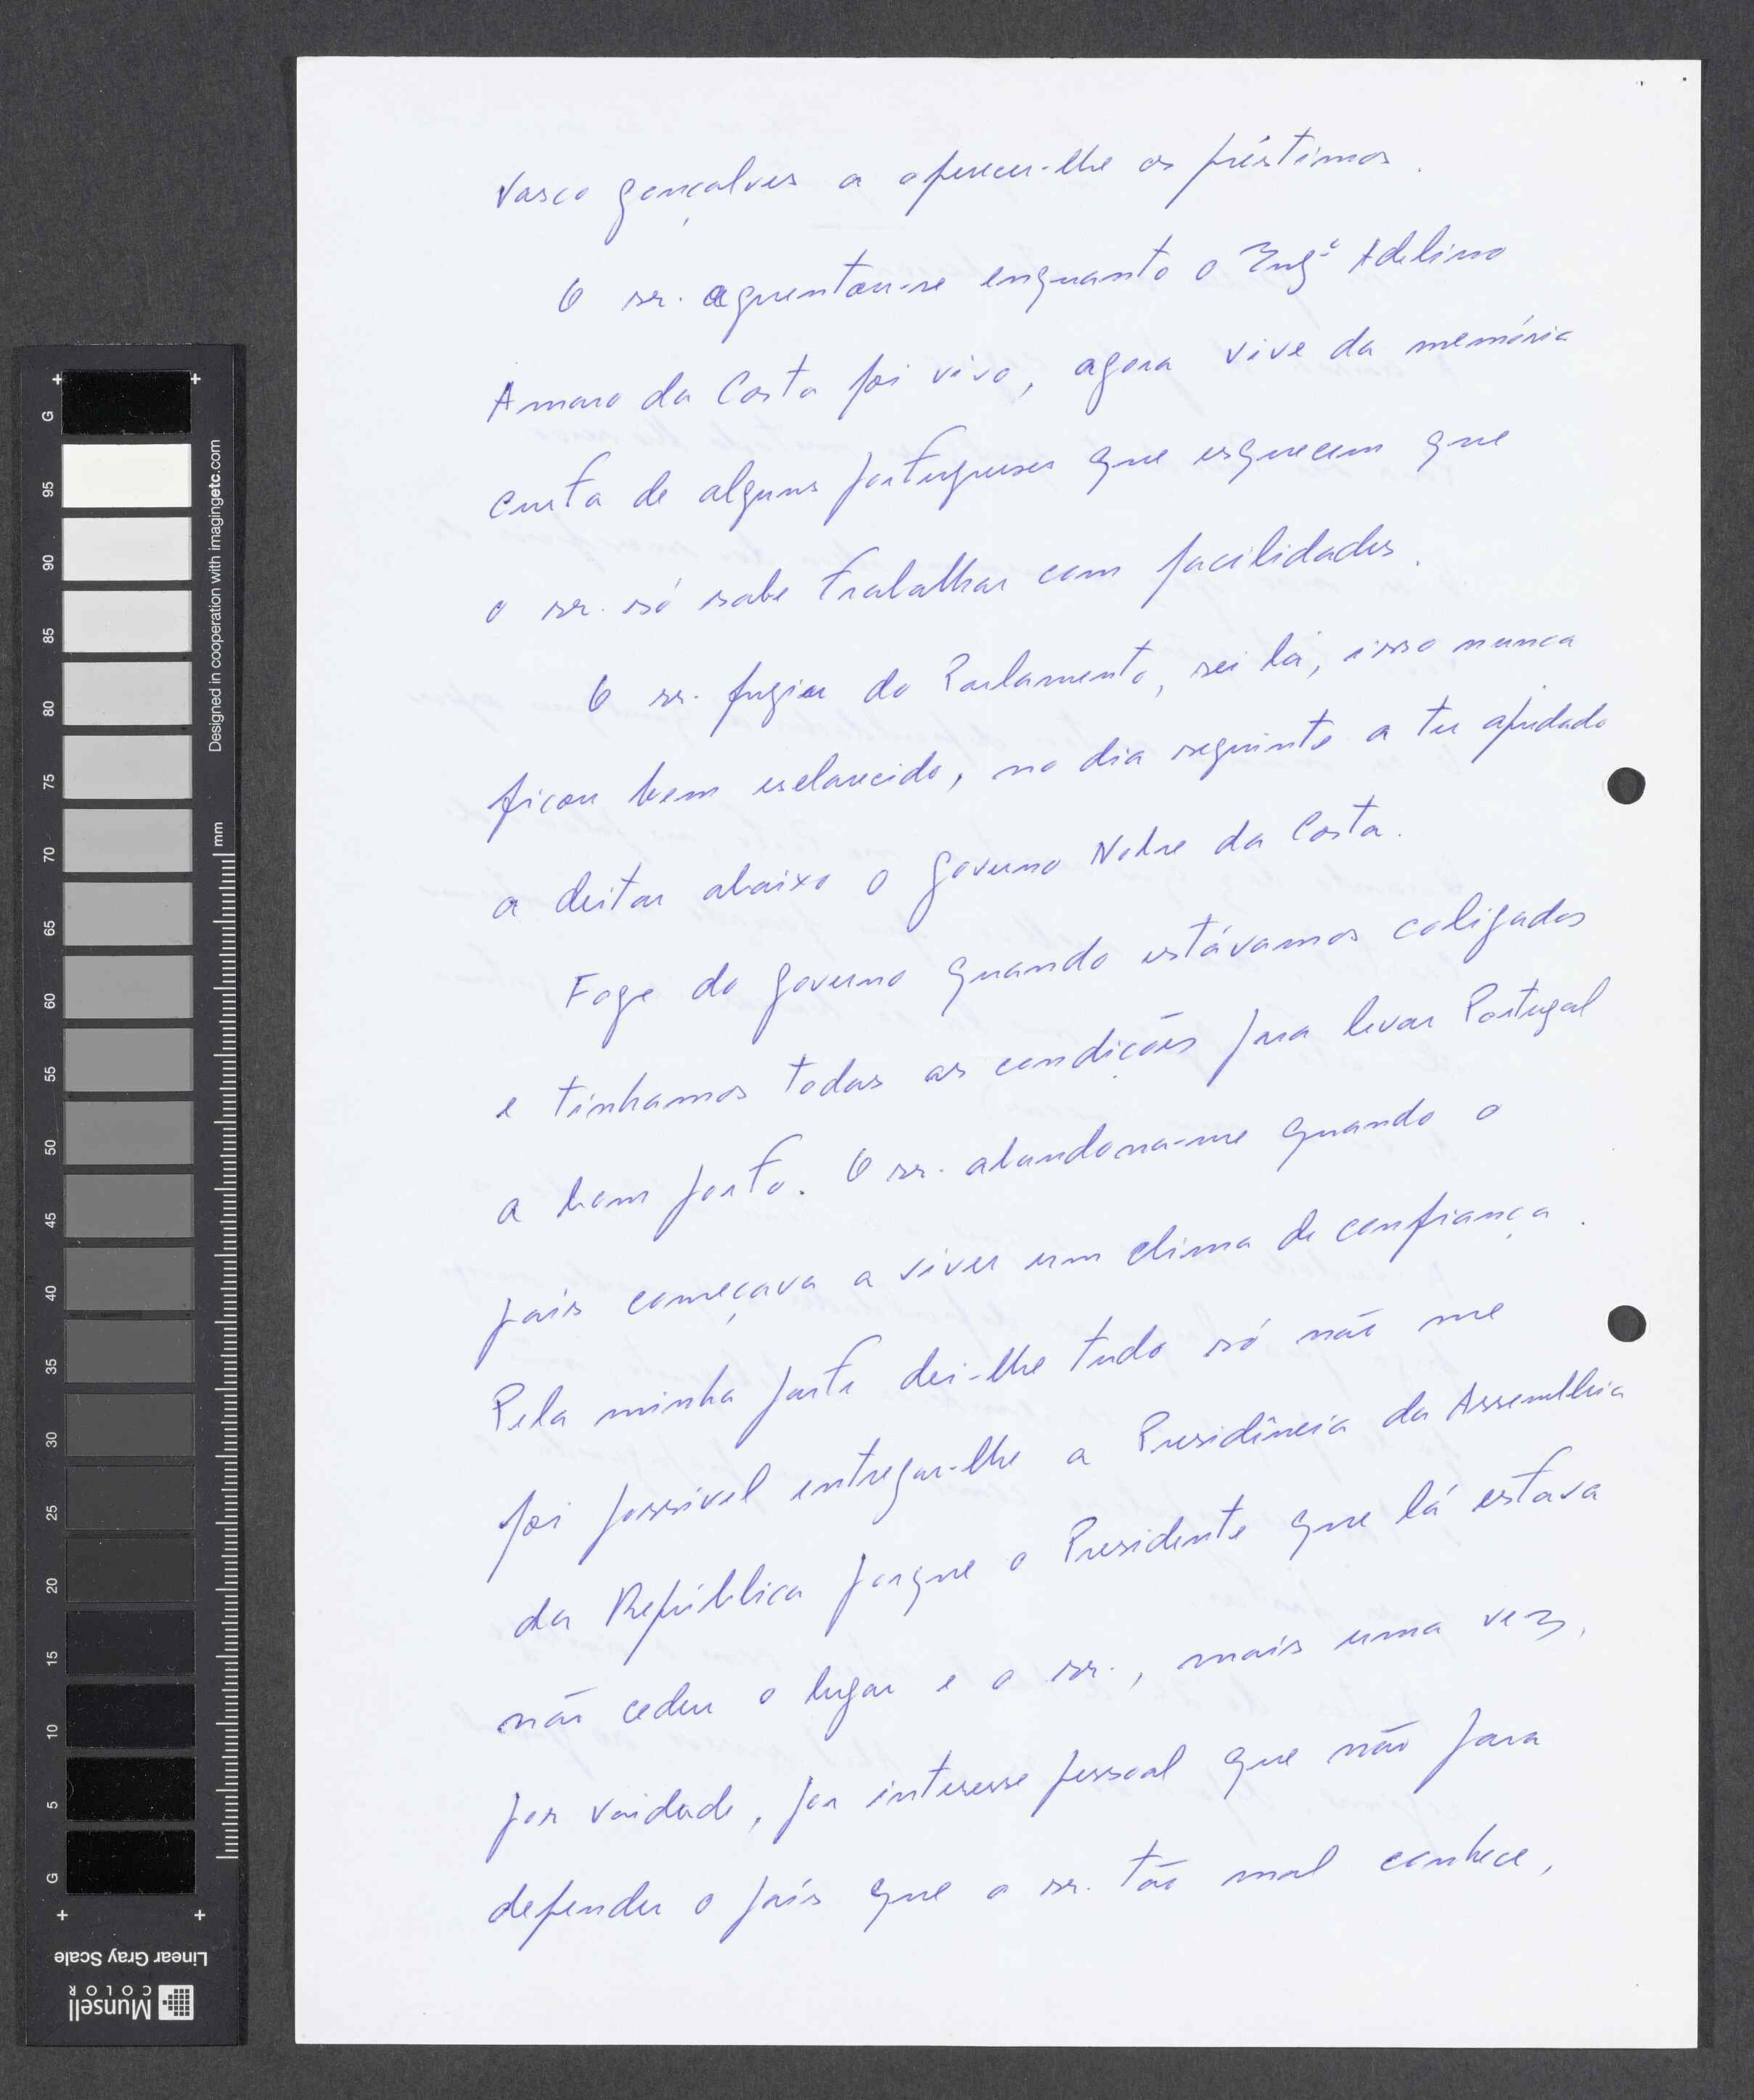 Vasco Gonçalves a oferecer-lhe os préstimos.
O sr. aguentou-se enquanto o Engº Adelino
Amaro da Costa foi vivo, agora vive da memória
curta de alguns portugueses que esquecem que
o sr. só sabe trabalhar com facilidades.
O sr. fugiu do Parlamento, sei lá, isso nunca
ficou bem esclarecido, no dia seguinte a ter ajudado
a deitar abaixo o governo Nobre da Costa.
Foge do governo quando estávamos coligados
e tinhamos todas as condições para levar Portugal
a bom porto. O sr. abandona-me quando o
país começava a viver um clima de confiança.
Pela minha parte dei-lhe tudo só não me
foi possível entregar-lhe a Presidência da Assembleia
da República porque o Presidente que lá estava
não cedeu o lugar e o sr., mais uma vez,
por vaidade, por interesse pessoal que não para
defender o país que o sr. tão mal conhece,
G
95
90
85
80
75
70
65
60
55
50
45
40
35
30
25
20
15
10
5
G
mm
Designed in cooperation with imagingetc.com
Linear Gray Scale
Munsell
COLOR